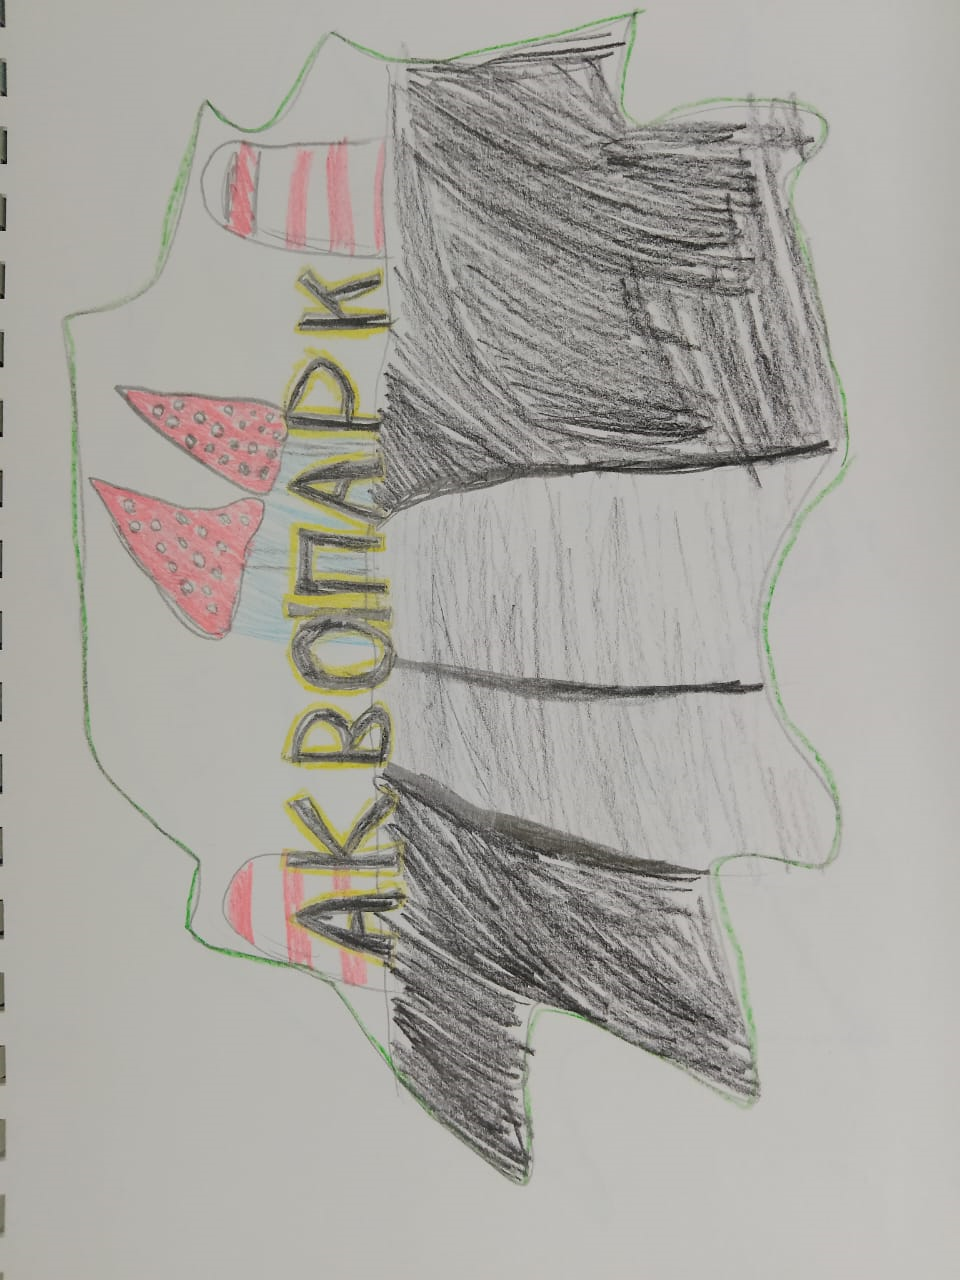 АКВОПАРК